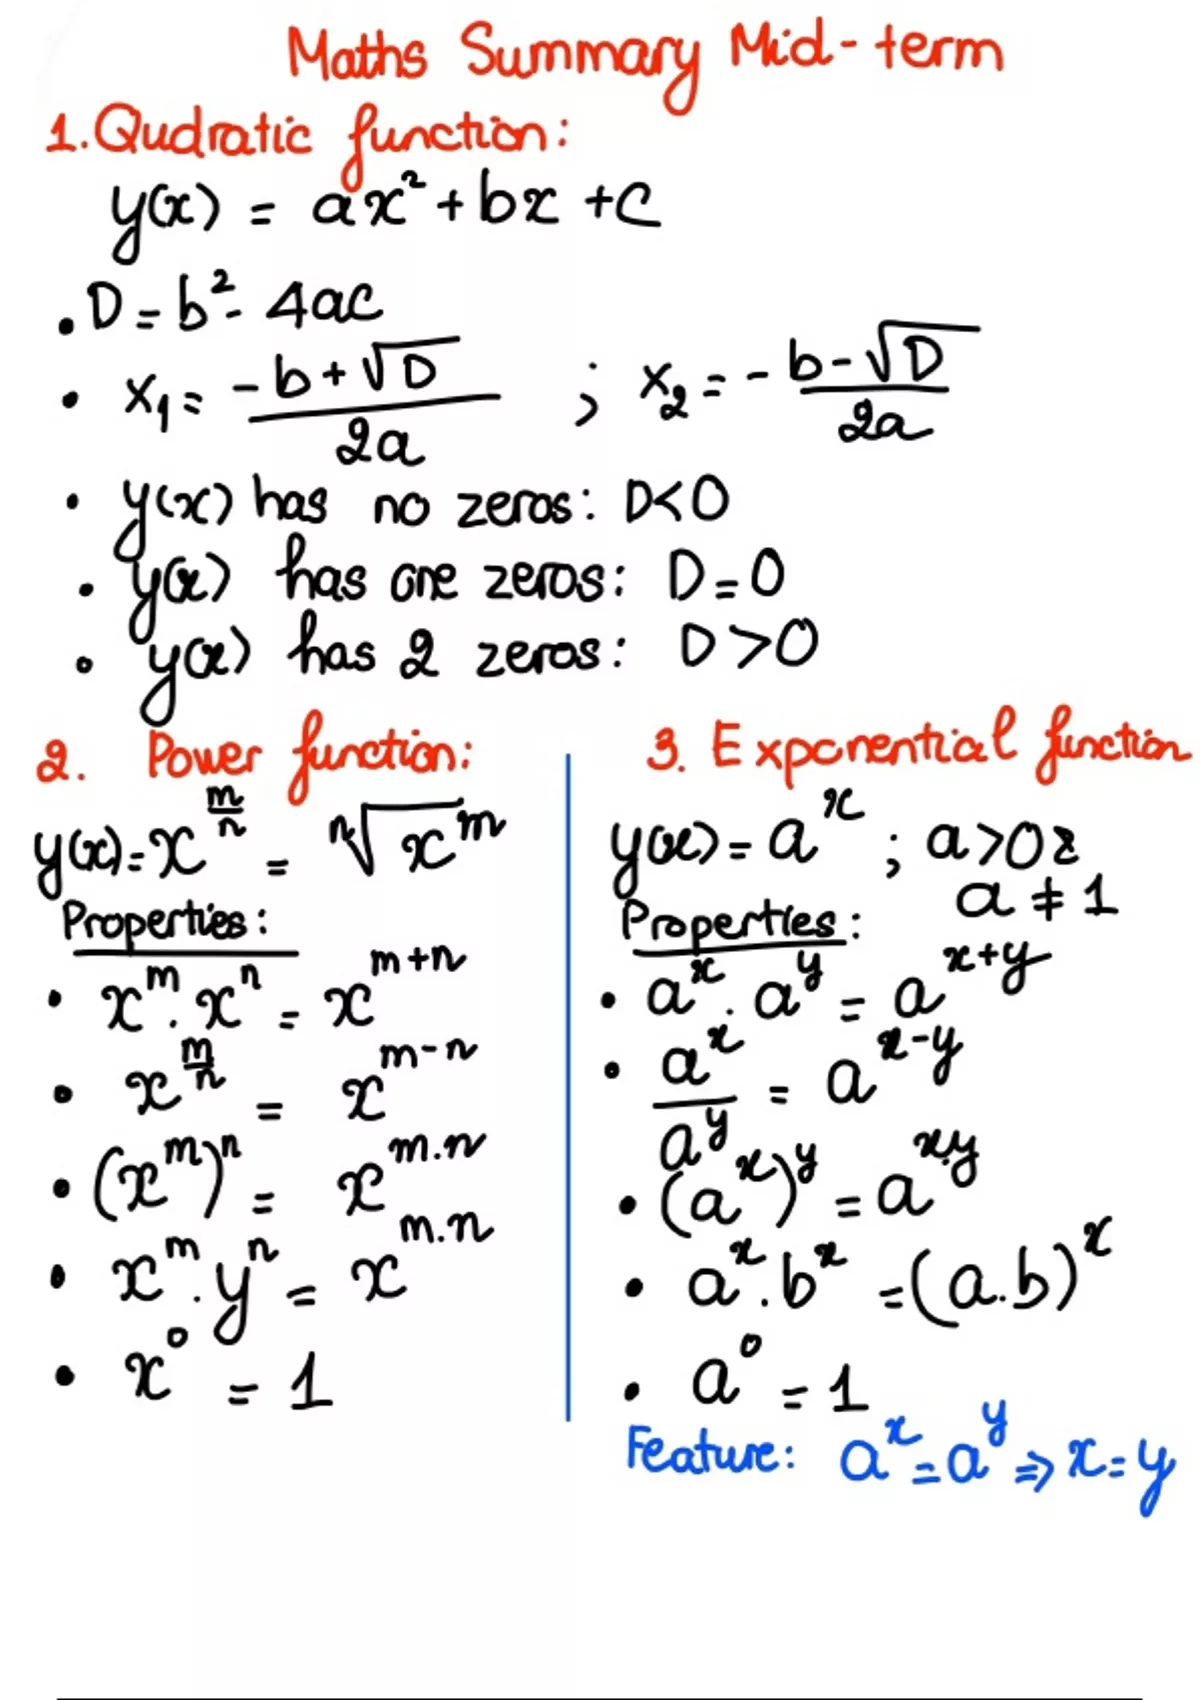 Maths Summary Mid-term
1. Qudratic function:
y(x) = ax² + bx + c
• D = b² - 4ac
• x₁ = (-b + √D)/2a ; x₂ = -(b - √D)/2a
• y(x) has no zeros: D<0
• y(x) has one zeros: D=0
• y(x) has 2 zeros: D>0
2. Power function:
y(x) = x^(m/n) = ⁿ√x^m
Properties:
• x^m . x^n = x^(m+n)
• x^(m/n) = x^(m-n)
• (x^m)^n = x^(m.n)
• x^m . y^n = x^(m.n)
• x⁰ = 1
3. Exponential function
y(x) = a^x ; a>0 &
a ≠ 1
Properties:
• a^x . a^y = a^(x+y)
• a^x/a^y = a^(x-y)
• (a^x)^y = a^(x.y)
• a^x . b^x = (a.b)^x
• a⁰ = 1
Feature: a^x = a^y ⇒ x = y